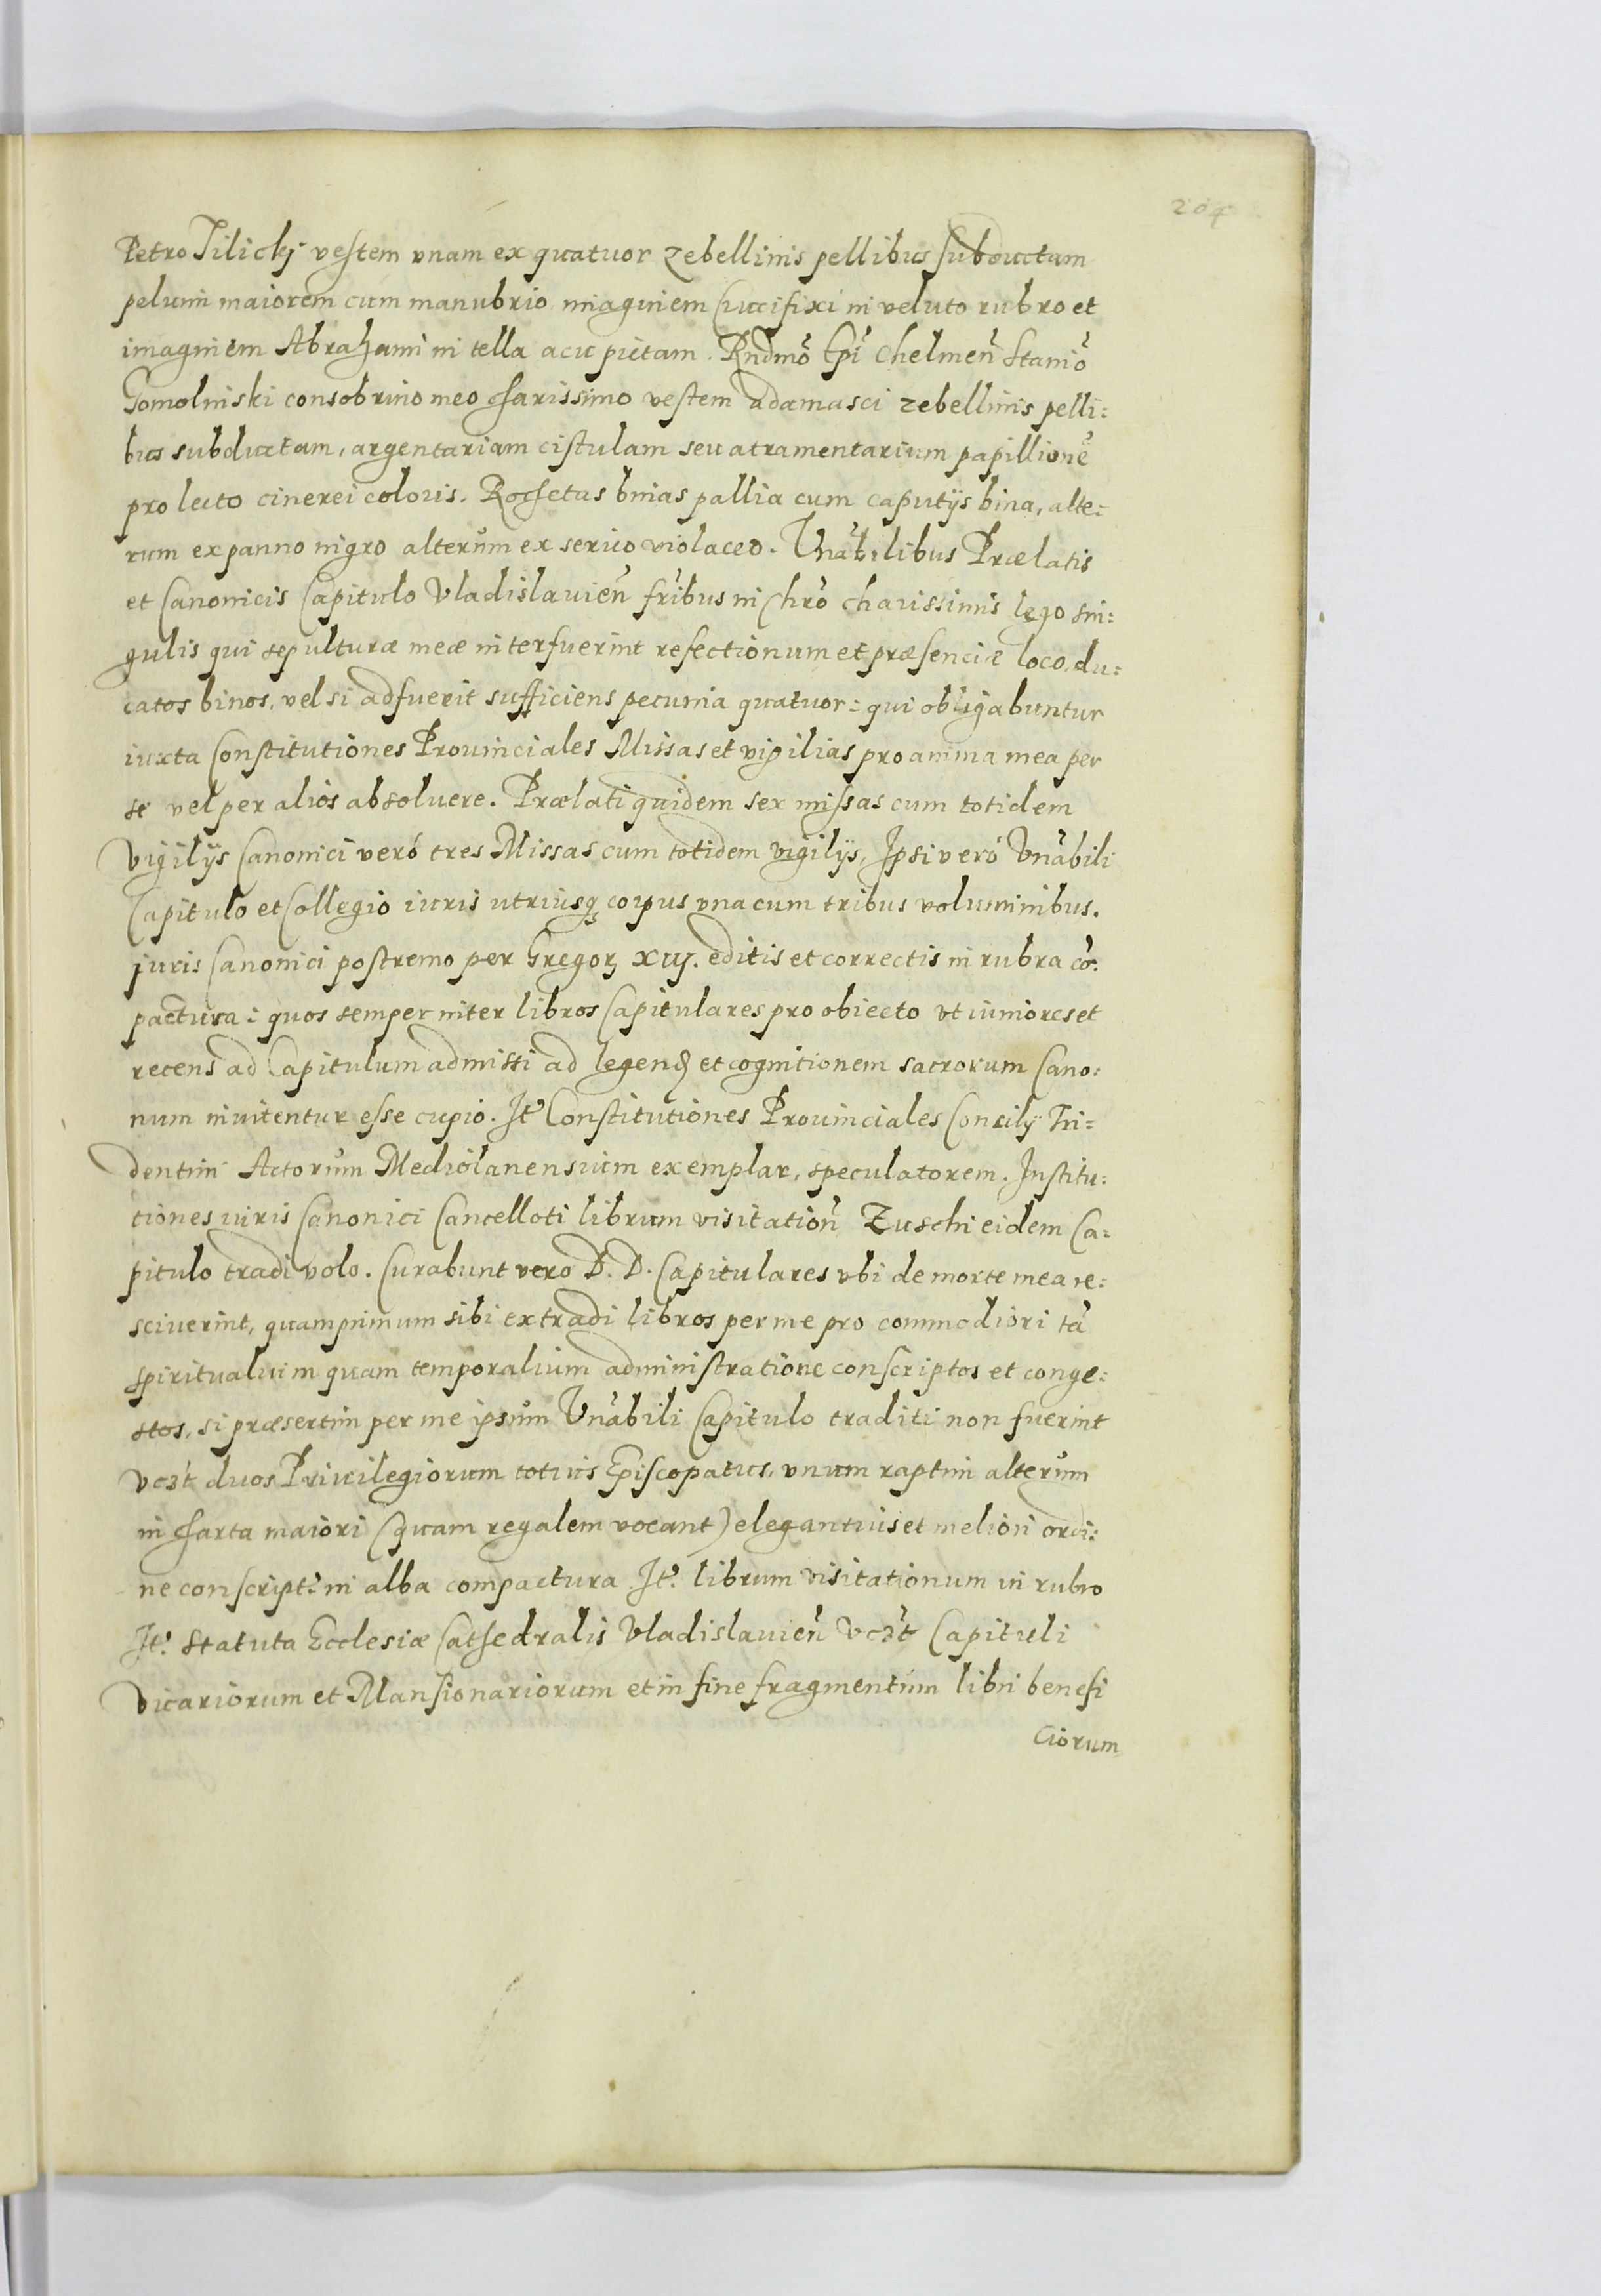 204
Petro Tilicky vestem vnam ex quatuor zebellinis pellibus subductam
peluim maiorem cum manubrio imaginem Crucifixi in veluto rubro et
imaginem Abrahami in tella acu pictam. Rndmo Epi Chelmen Stanio
Gomolinski consobrino meo charissimo vestem adamasci zebellinis pelli:
bus subductam, argentariam cistulam seu atramentarium papillione
pro lecto cinerei coloris. Rochetas binas pallia cum caputijs bina, alte:
rum ex panno nigro alterum ex serico violaceo. Vnabilibus Prælatis
et Canonicis Capitulo Vladislauien fribus in Chro charissimis lego sin:
gulis qui sepulturæ meæ interfuerint refectionum et præsenciæ loco, du:
catos binos, vel si adfuerit sufficiens pecunia quatuor: qui obligabuntur
iuxta Constitutiones Prouinciales Missas et vigilias pro anima mea per
se vel per alios absoluere. Prælati quidem sex missas cum totidem
Vigilijs Canonici veró tres Missas cum totidem vigilijs, Ipsi veró Vnabili
Capitulo et Collegio iuris utriusq corpus vna cum tribus voluminibus.
juris Canonici postremo per Gregor XIIJ. editis et correctis in rubra co:
pactura: quos semper inter libros Capitulares pro obiecto vt iuniores et
recens ad Capitulum admissi ad legend et cognitionem sacrorum Cano:
num inuitentur esse cupio. It Constitutiones Prouinciales Concilij Tri=
dentini Actorum Mediolanensium exemplar, speculatorem. Institu:
tiones iuris Canonici Cancelloti librum visitation Zuschi eidem Ca:
pitulo tradi volo. Curabunt vero D. D. Capitulares vbi de morte mea re:
sciuerint, quamprimum sibi extradi libros per me pro commodiori ta
spiritualium quam temporalium administratione conscriptos et conge:
stos, si præsertim per me ipsum Vnabili Capitulo traditi non fuerint
vczt duos Priuilegiorum totius Episcopatus, vnum raptim alterum
in charta maiori (quam regalem vocant) elegantius et meliori ordi:
ne conscript. in alba compactura It. librum visitationum in rubro
It. Statuta Ecclesiæ Cathedralis Vladislauien vczt Capituli
Vicariorum et Mansionariorum et in fine fragmentum libri benefi
ciorum